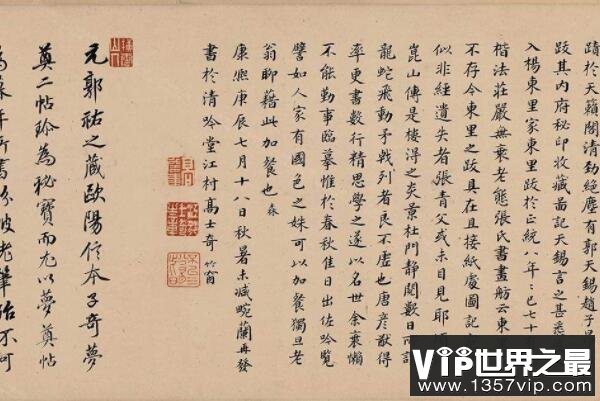 蹟於天籟閣清劲絶塵有郭天錫趙子
跋其内府秘印收藏啚記天錫言之甚悉
入楊東里家東里跋於正統八年：已七十
楷法莊嚴無衰老態張氏書畫舫云東
不存今東里之跋具在且接紙處圖記
似非經遺失者張青父或未目見耶
崑山傳是樓淂之炎景杜門静閲數日
龍蛇飛動矛戟列者良不虚也唐彦猷得
率更書數行精思學之遂以名世余衰懶
不能勤事臨摹惟於春秋佳日出佐吟覧
譬如人家有國色之姝可以加餐獨旦老
翁聊藉此加餐也 森
康熙庚辰七月十八日秋暑未减畹蘭再發
書於清吟堂江村髙士奇 竹窗
元郭祐之藏歐陽信本子奇夢
奠二帖珍為秘寶而尤以夢奠帖
為
VIP世界之最
www.1357vip.com